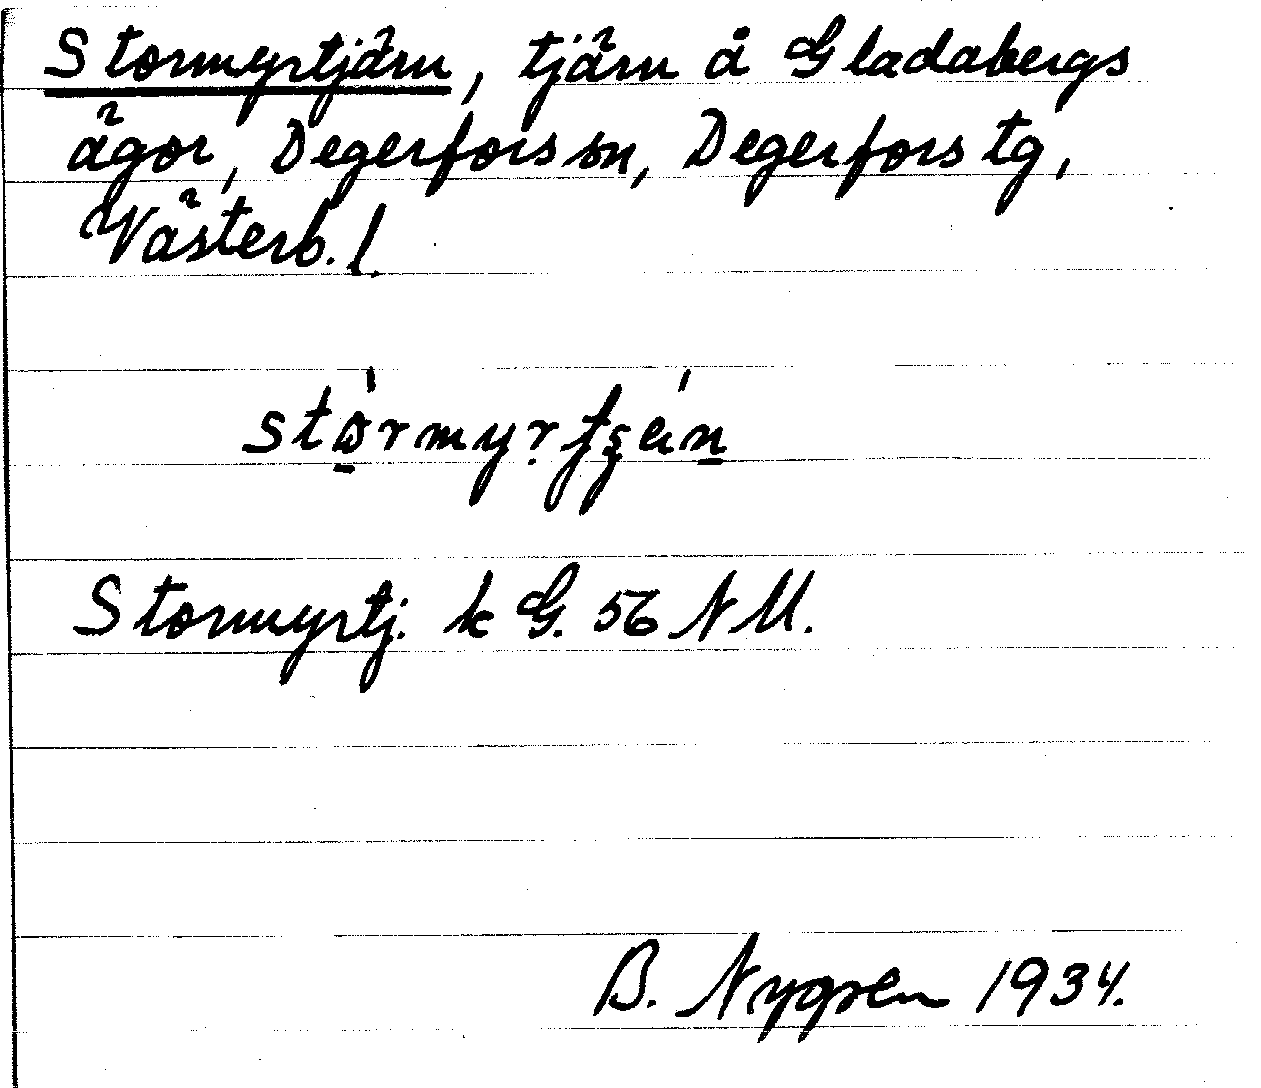 Stormyrtjärn, tjärn å Gladabergs
ägor, Degerfors sn, Degerfors tg,
Västerb. l.
Stormyrtj. k G. 56 NU.
B. Nygren 1934.